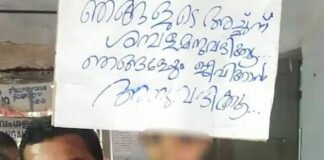 ഞങ്ങളുടെ അച്ഛന്
ശമ്പളമനുവദിക്കൂ..
ഞങ്ങളേയും ജീവിക്കാൻ
അനുവദിക്കൂ...